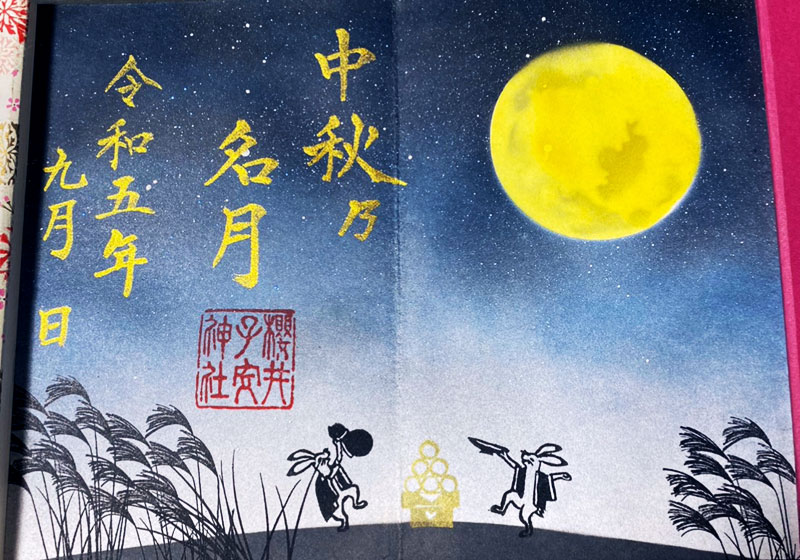 中秋乃
名月
令和五年
九月 日
櫻井
子安
神社